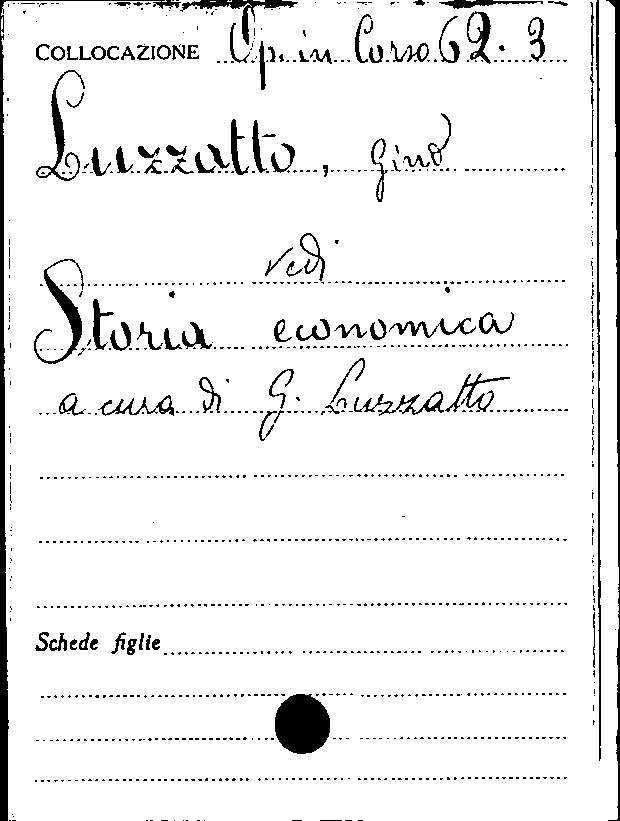 COLLOCAZIONE Op. in Corso 62. 3
Luzzatto, Gino
vedi
Storia economica
a cura di G. Luzzatto
Schede figlie